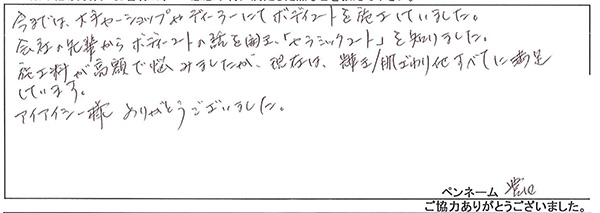 今までは、大手チャーショップやディーラーにてボディコートを施工していました。
会社の先輩からボディーコートの話を聞き、「セラミックコート」を知りました。
施工料が高額で悩みましたが、現在は、輝き/肌ざわり他すべてに満足
しています。
アイアイシー様 ありがとうございました。
ペンネーム
ご協力ありがとうございました。